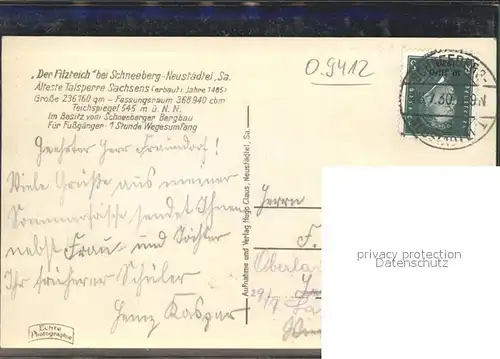 „Der Filzteich" bei Schneeberg-Neustädtel, Sa.
Älteste Talsperre Sachsens (erbaut i. Jahre 1485)
Größe 236160 qm - Fassungsraum 368940 cbm
Teichspiegel 545 m ü. N. N.
Im Besitz vom Schneeberger Bergbau
Für Fußgänger · 1 Stunde Wegesumfang
0.9412
Geehrter Herr Fraundorf!
Viele Grüße aus meiner
Sommerfrische sendet Ihnen
nebst Frau und Tochter
Ihr früherer Schüler
Heinz Kaspar
Echte
Photographie
Aufnahme und Verlag Hugo Claus, Neustädtel, Sa.
Herrn
F.
29/7
privacy protection
Datenschutz